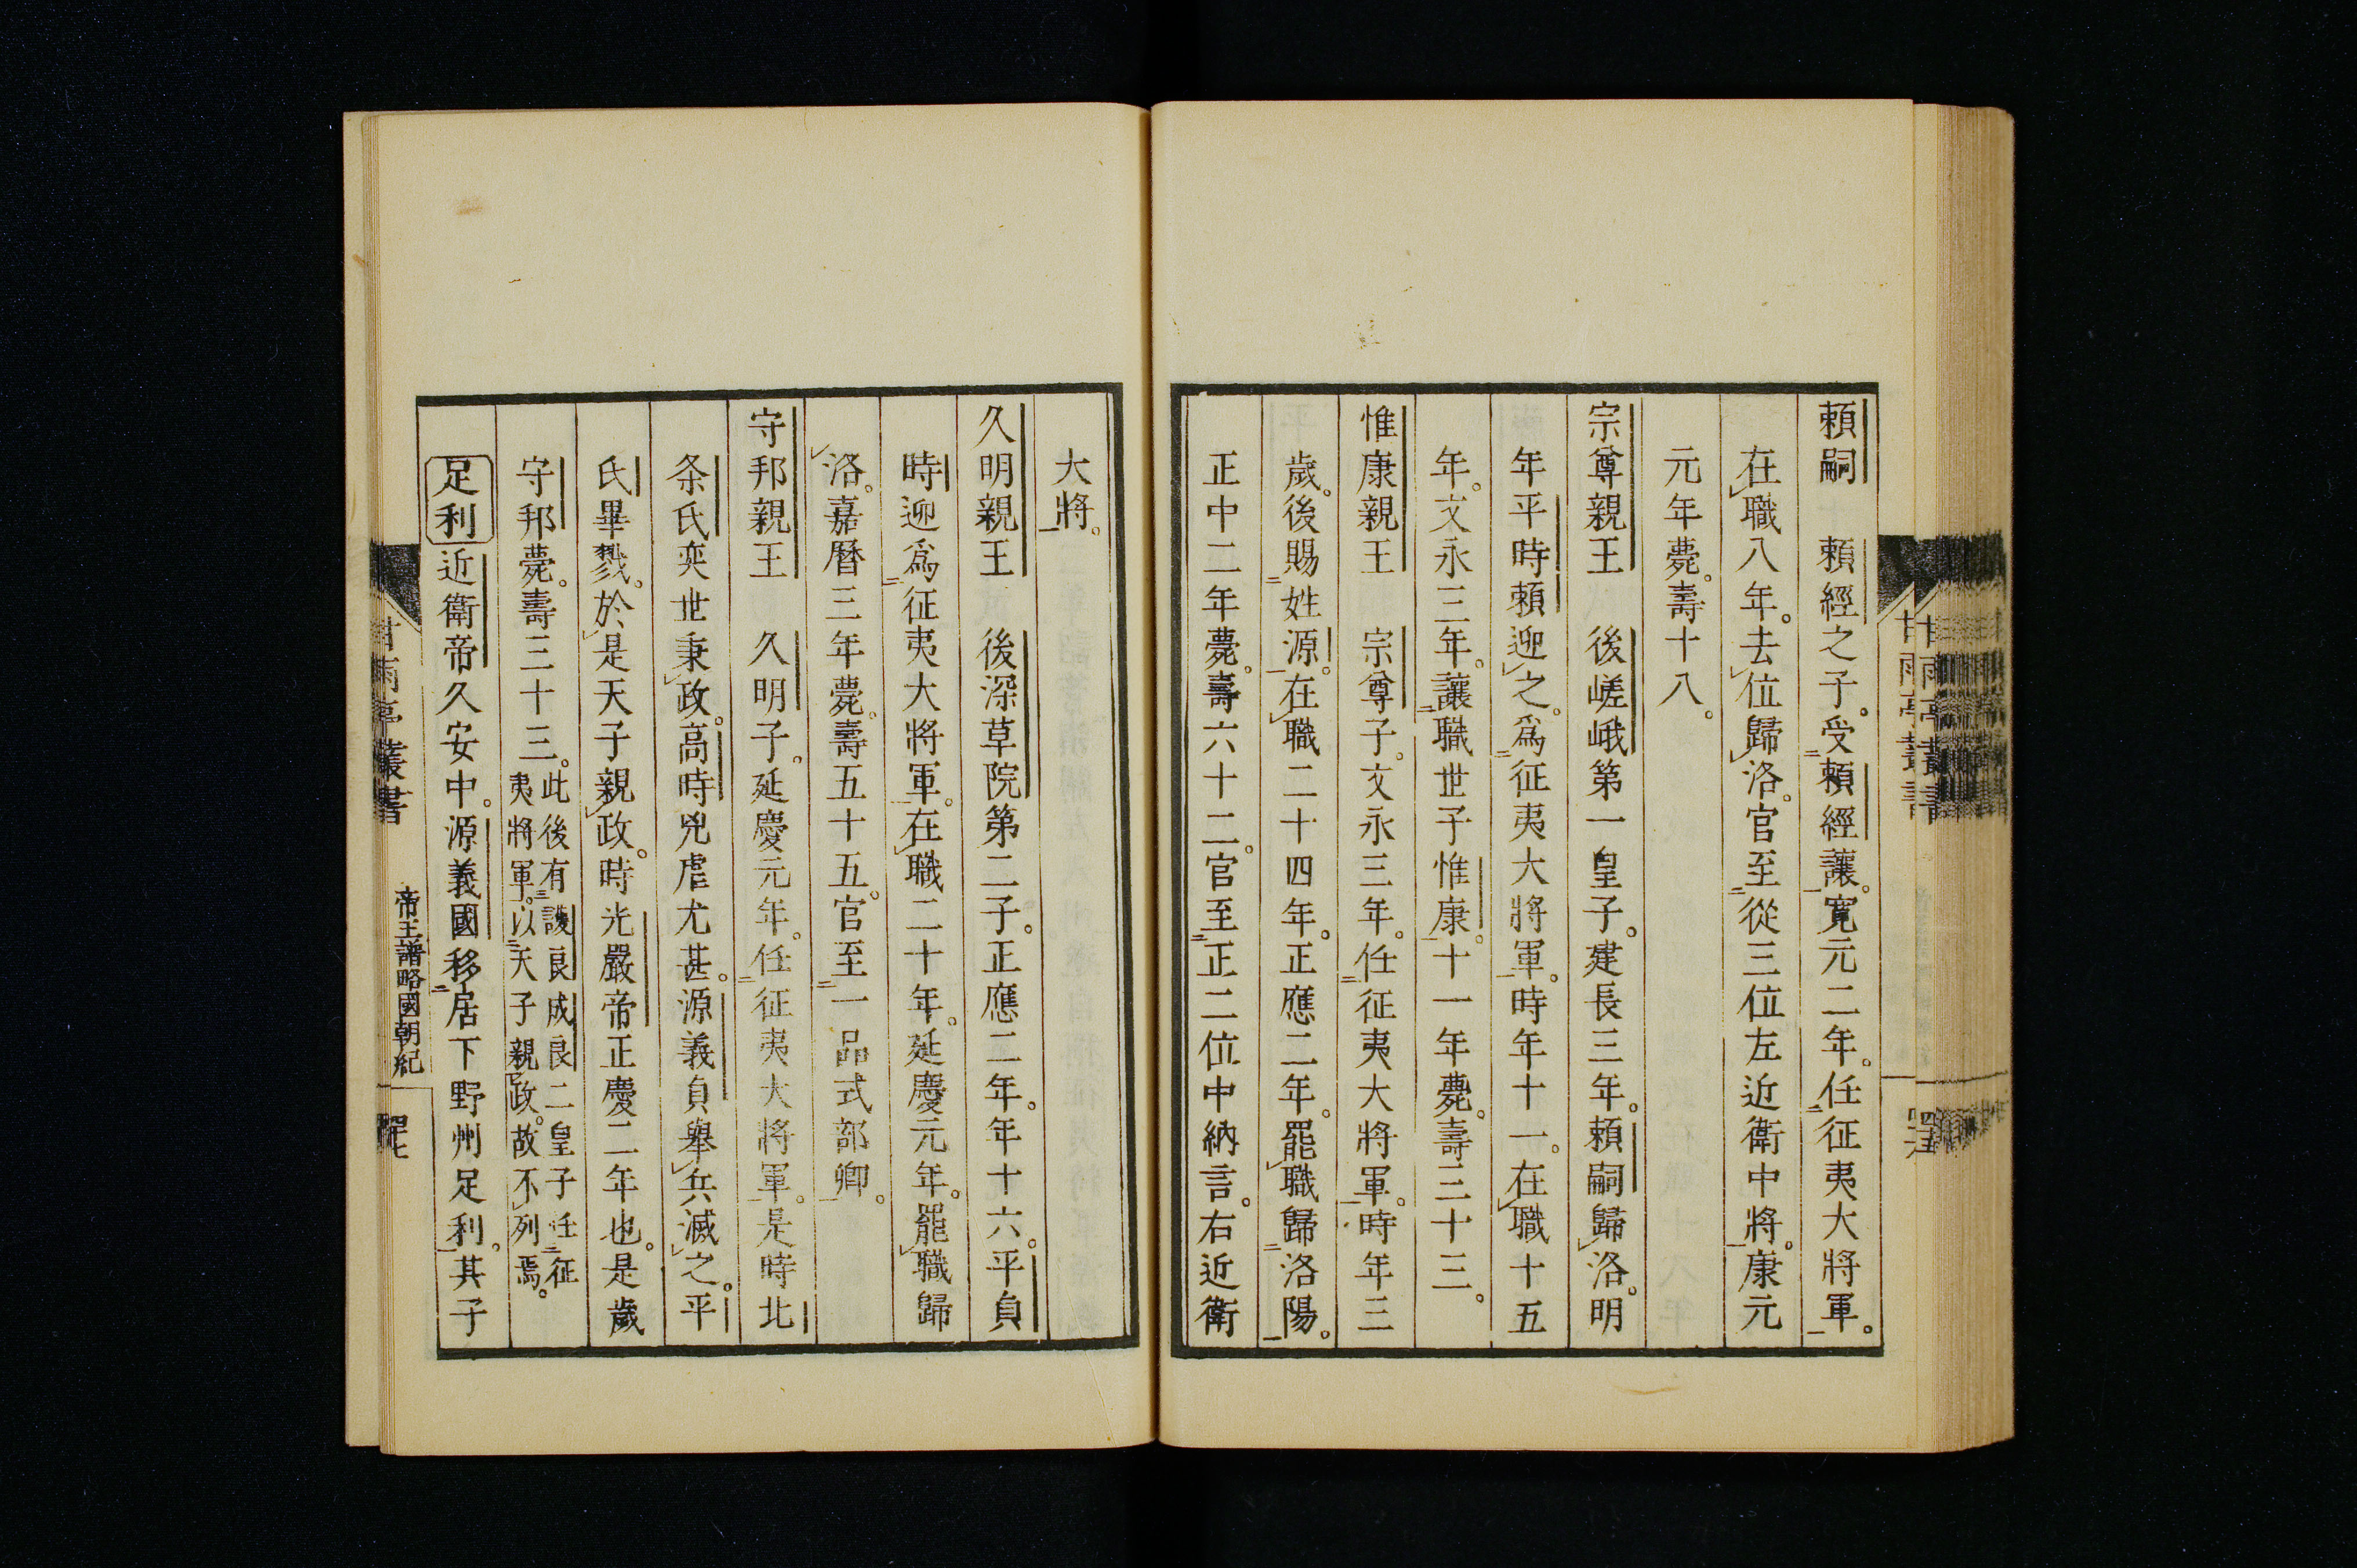 頼嗣　頼經之子。受頼經讓。寛元二年。任征夷大將軍。
在職八年。去位歸洛。官至從三位左近衛中將。康元
元年薨。壽十八。
宗尊親王　後嵯峨第一皇子。建長三年。頼嗣歸洛。明
年平時頼迎之。爲征夷大將軍。時年十一。在職十五
年。文永三年。讓職世子惟康。十一年薨。壽三十三。
惟康親王　宗尊子。文永三年。任征夷大將軍。時年三
歲。後賜姓源。在職二十四年。正應二年。罷職歸洛陽。
正中二年薨。壽六十二。官至正二位中納言。右近衛
大將。
久明親王　後深草院第二子。正應二年。年十六。平貞
時迎爲征夷大將軍。在職二十年。延慶元年。罷職歸
洛。嘉曆三年薨。壽五十五。官至一品式部卿。
守邦親王　久明子。延慶元年。任征夷大將軍。是時北
条氏奕世秉政。高時兇虐尤甚。源義貞舉兵滅之。平
氏畢戮。於是天子親政。時光嚴帝正慶二年也。是歲
守邦薨。壽三十三。此後有護良成良二皇子任征
夷將軍。以天子親政。故不列焉。
足利近衛帝久安中。源義國移居下野州足利。其子
甘雨亭叢書　帝王譜略國朝紀
甘雨亭叢書